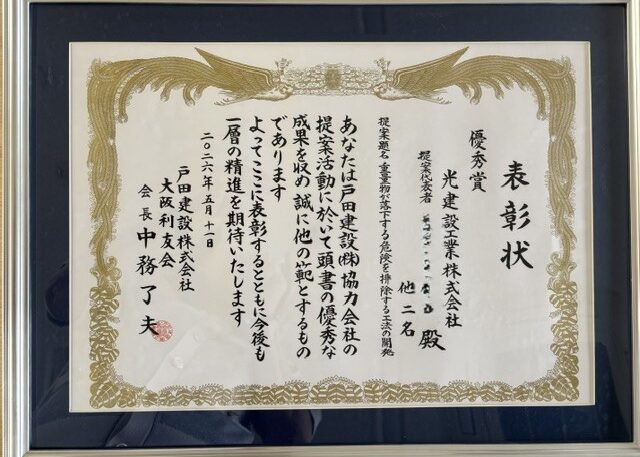 表彰状
優秀賞
光建設工業株式会社
提案代表者
他二名
殿
提案題名 重量物が落下する危険を排除する工法の開発
あなたは戸田建設(株)協力会社の
提案活動に於いて頭書の優秀な
成果を収め誠に他の範とするもの
であります
よってここに表彰するとともに今後も
一層の精進を期待いたします
二〇二六年五月十一日
戸田建設株式会社
大阪利友会
会長 中務了夫